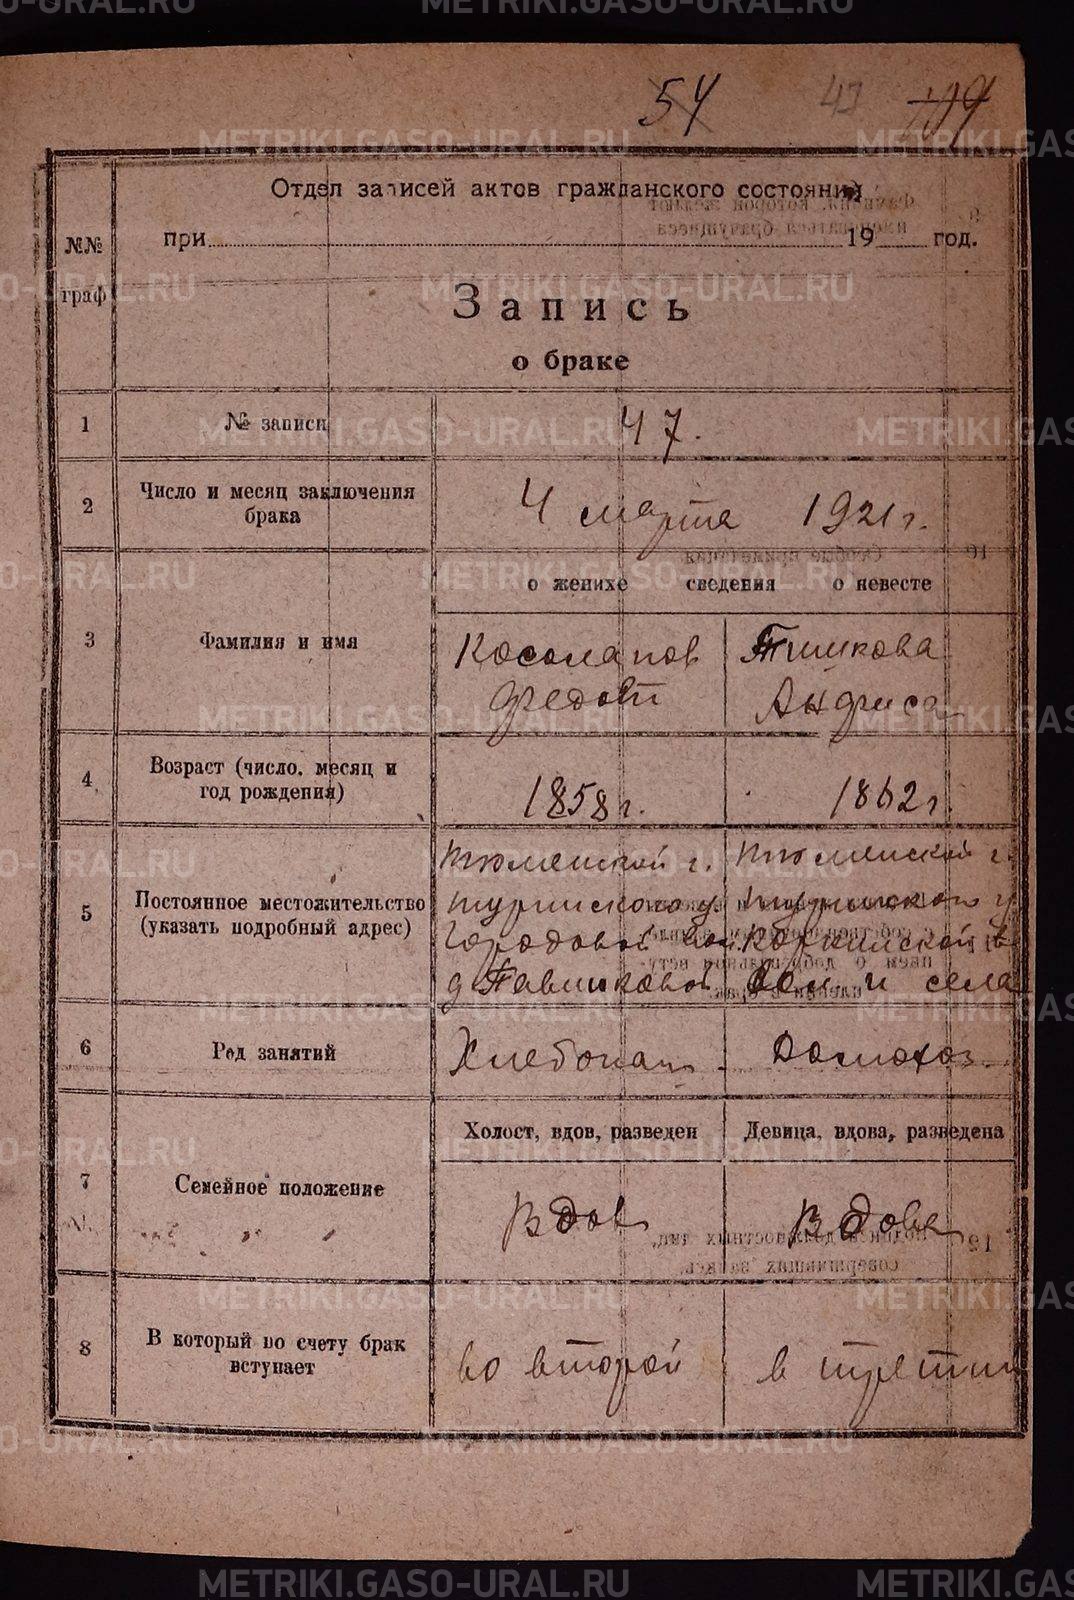 54 47
Отдел записей актов гражданского состояния
при 19 год.
№№ граф
Запись
о браке
1 № записи 47.
2 Число и месяц заключения брака 4 марта 1921 г.
о женихе сведения о невесте
3 Фамилия и имя Косолапов Тишкова
Федот
4 Возраст (число, месяц и год рождения) 1858 г. 1862 г.
5 Постоянное местожительство (указать подробный адрес)
Тюменской г. Тюменской г.
Туринского у Туринского у
Городовой Коркинской в
д села
6 Род занятий Хлебопаш. Домохоз.
Холост, вдов, разведен Девица, вдова, разведена
7 Семейное положение Вдов Вдова
8 В который по счету брак вступает во второй в третий
METRIKI.GASO-URAL.RU